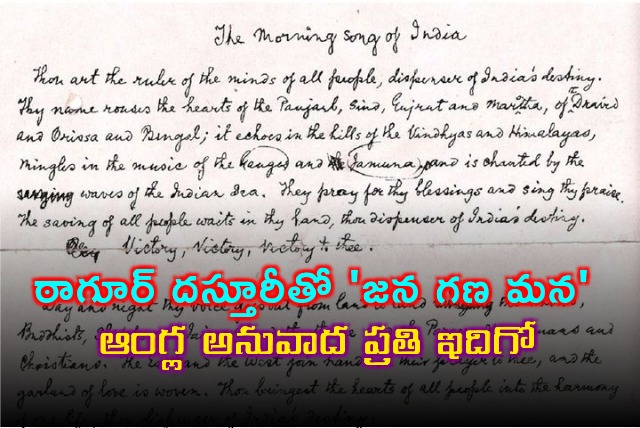 The Morning song of India
Thou art the ruler of the minds of all people, dispenser of India's destiny.
Thy name rouses the hearts of the Panjab, Sind, Gujrat and Maratha, of Dravid
and Orissa and Bengal; it echoes in the hills of the Vindhyas and Himalayas,
mingles in the music of the Ganges and Jamuna, and is chanted by the
waves of the Indian Sea. They pray for thy blessings and sing thy praise.
The saving of all people waits in thy hand, thou dispenser of India's destiny.
Victory, Victory, Victory to thee.
Day and night thy voice
ఠాగూర్ దస్తూరీతో 'జన గణ మన'
Buddhists,
ఆంగ్ల అనువాద ప్రతి ఇదిగో
Christians. The and the West join hand to thee, and the
garland of love is woven. Thou bringest the hearts of all people into the harmony